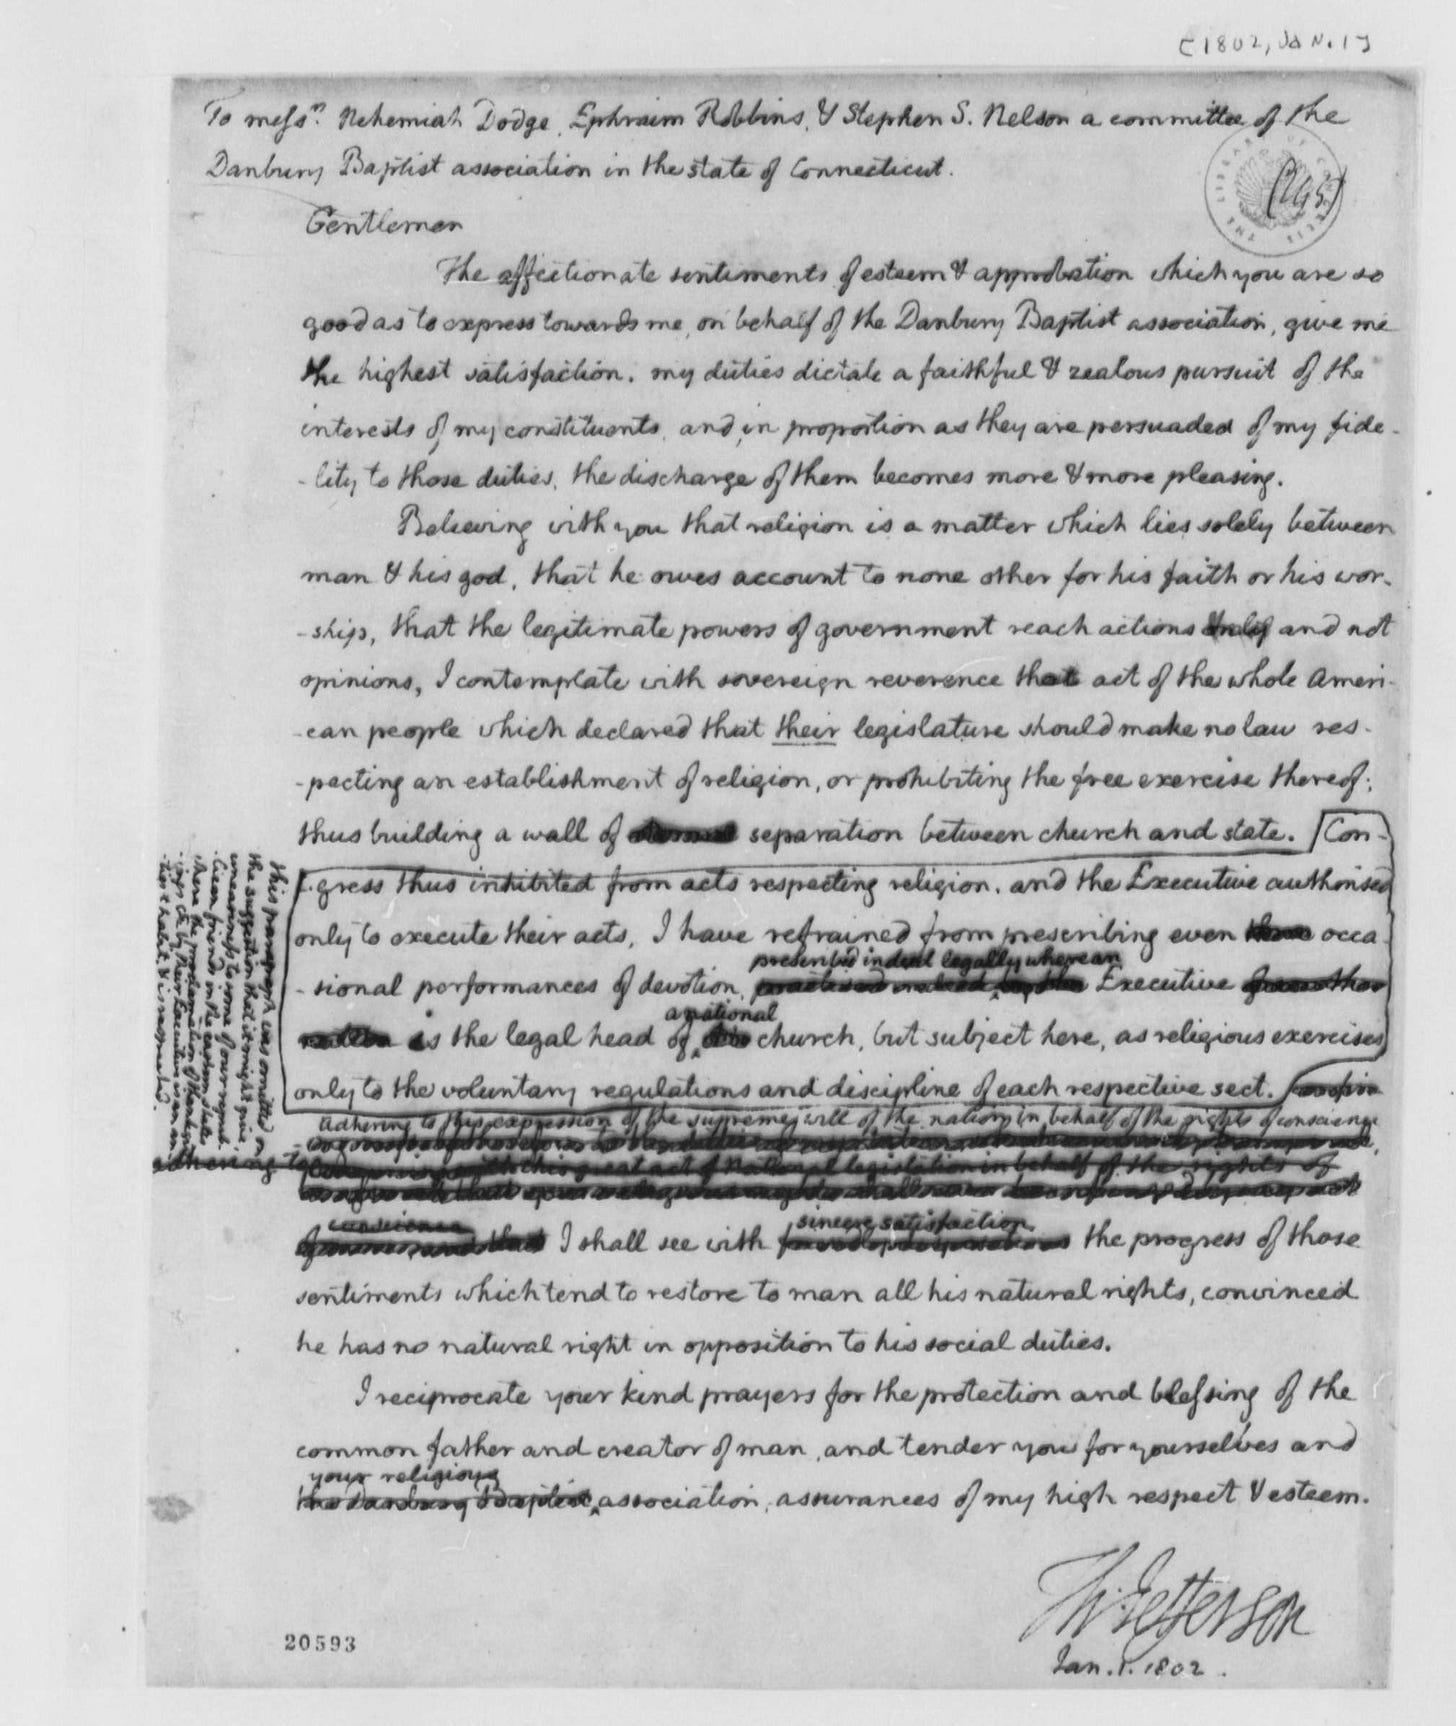 [1802, Jan. 1]
To messrs. Nehemiah Dodge, Ephraim Robbins, & Stephen S. Nelson a committee of the
Danbury Baptist association in the state of Connecticut.
THE LIBRARY OF CONGRESS
Gentlemen
The affectionate sentiments of esteem & approbation which you are so
good as to express towards me, on behalf of the Danbury Baptist association, give me
the highest satisfaction. my duties dictate a faithful & zealous pursuit of the
interests of my constituents, and, in proportion as they are persuaded of my fide-
-lity to those duties, the discharge of them becomes more & more pleasing.
Believing with you that religion is a matter which lies solely between
man & his god, that he owes account to none other for his faith or his wor-
-ship, that the legitimate powers of government reach actions only and not
opinions, I contemplate with sovereign reverence that act of the whole Ameri-
-can people which declared that their legislature should make no law res-
-pecting an establishment of religion, or prohibiting the free exercise thereof;
thus building a wall of separation between church and state. [Con-
-gress thus inhibited from acts respecting religion, and the Executive authorised
only to execute their acts, I have refrained from prescribing even occa-
prescribed indeed legally where an
-sional performances of devotion, Executive
a national
is the legal head of church, but subject here, as religious exercises
only to the voluntary regulations and discipline of each respective sect.
Adhering to this expression of the supreme will of the nation in behalf of the rights of conscience
adhering to
this great act of national legislation in behalf of the rights of
conscience
sincere satisfaction
I shall see with the progress of those
sentiments which tend to restore to man all his natural rights, convinced
he has no natural right in opposition to his social duties.
I reciprocate your kind prayers for the protection and blessing of the
common father and creator of man, and tender you for yourselves and
your religious
the Danbury Baptist association, assurances of my high respect & esteem.
Th: Jefferson
Jan. 1. 1802.
20593
this paragraph was omitted on
the suggestion that it might give
uneasiness to some of our republi-
-can friends in the eastern states
where the proclamation of thanksgiv-
-ings &c by their Executive is an an-
-tient habit, & is respected.